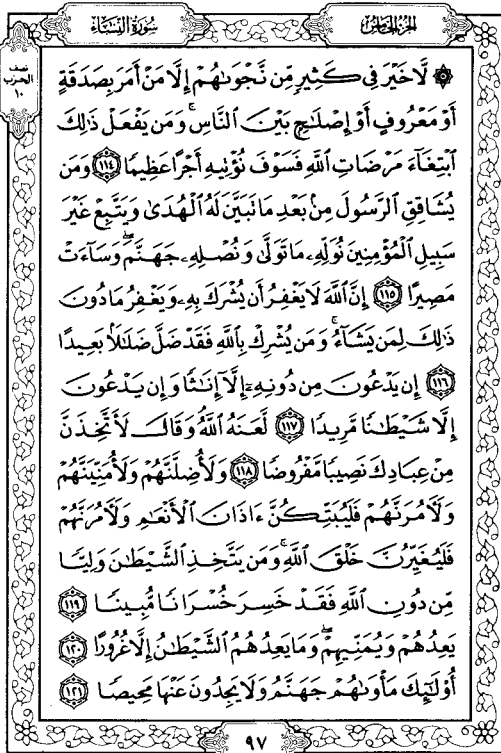 الجزء الخامس
سورة النساء
نصف
الحزب
١٠
۞ لَّا خَيْرَ فِى كَثِيرٍ مِّن نَّجْوَىٰهُمْ إِلَّا مَنْ أَمَرَ بِصَدَقَةٍ
أَوْ مَعْرُوفٍ أَوْ إِصْلَٰحٍۭ بَيْنَ ٱلنَّاسِ ۚ وَمَن يَفْعَلْ ذَٰلِكَ
ٱبْتِغَآءَ مَرْضَاتِ ٱللَّهِ فَسَوْفَ نُؤْتِيهِ أَجْرًا عَظِيمًا ﴿١١٤﴾ وَمَن
يُشَاقِقِ ٱلرَّسُولَ مِنۢ بَعْدِ مَا تَبَيَّنَ لَهُ ٱلْهُدَىٰ وَيَتَّبِعْ غَيْرَ
سَبِيلِ ٱلْمُؤْمِنِينَ نُوَلِّهِۦ مَا تَوَلَّىٰ وَنُصْلِهِۦ جَهَنَّمَ ۖ وَسَآءَتْ
مَصِيرًا ﴿١١٥﴾ إِنَّ ٱللَّهَ لَا يَغْفِرُ أَن يُشْرَكَ بِهِۦ وَيَغْفِرُ مَا دُونَ
ذَٰلِكَ لِمَن يَشَآءُ ۚ وَمَن يُشْرِكْ بِٱللَّهِ فَقَدْ ضَلَّ ضَلَٰلًۢا بَعِيدًا
﴿١١٦﴾ إِن يَدْعُونَ مِن دُونِهِۦٓ إِلَّآ إِنَٰثًا وَإِن يَدْعُونَ
إِلَّا شَيْطَٰنًا مَّرِيدًا ﴿١١٧﴾ لَّعَنَهُ ٱللَّهُ ۘ وَقَالَ لَأَتَّخِذَنَّ
مِنْ عِبَادِكَ نَصِيبًا مَّفْرُوضًا ﴿١١٨﴾ وَلَأُضِلَّنَّهُمْ وَلَأُمَنِّيَنَّهُمْ
وَلَءَامُرَنَّهُمْ فَلَيُبَتِّكُنَّ ءَاذَانَ ٱلْأَنْعَٰمِ وَلَءَامُرَنَّهُمْ
فَلَيُغَيِّرُنَّ خَلْقَ ٱللَّهِ ۚ وَمَن يَتَّخِذِ ٱلشَّيْطَٰنَ وَلِيًّا
مِّن دُونِ ٱللَّهِ فَقَدْ خَسِرَ خُسْرَانًا مُّبِينًا ﴿١١٩﴾
يَعِدُهُمْ وَيُمَنِّيهِمْ ۖ وَمَا يَعِدُهُمُ ٱلشَّيْطَٰنُ إِلَّا غُرُورًا ﴿١٢٠﴾
أُو۟لَٰٓئِكَ مَأْوَىٰهُمْ جَهَنَّمُ وَلَا يَجِدُونَ عَنْهَا مَحِيصًا ﴿١٢١﴾
٩٧